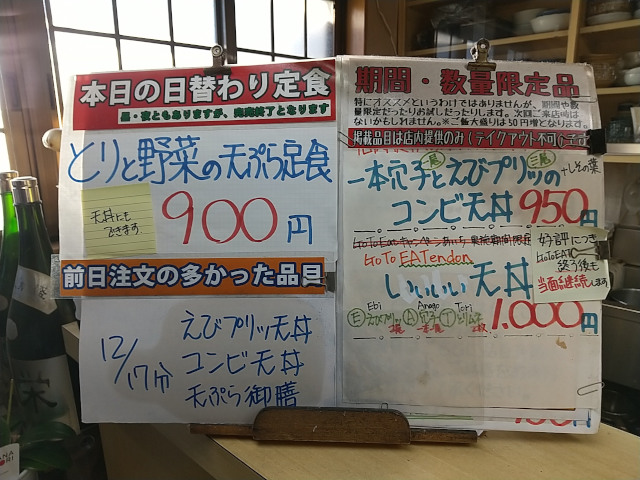 本日の日替わり定食
昼・夜ともありますが、売切終了となります
とりと野菜の天ぷら定食
天丼にも
できます。
900円
前日注文の多かった品目
12/17分
えびプリッ天丼
コンビ天丼
天ぷら御膳
期間・数量限定品
特にオススメというわけではありませんが、期間や数
量限定だったりお試しだったりします。次回ご来店時は
ないかもしれません。※ご飯大盛りは50円増となります。
掲載品目は店内提供のみ(テイクアウト不可)です
一本穴子とえびプリッの
+しその葉
コンビ天丼 950円
GoTo EATendon
いいいい天丼
好評につき
GoToEAT
終了後も
当面継続します
Ebi Anago Tori
E えびプリッ A 穴子 T とりムネ
1,000円